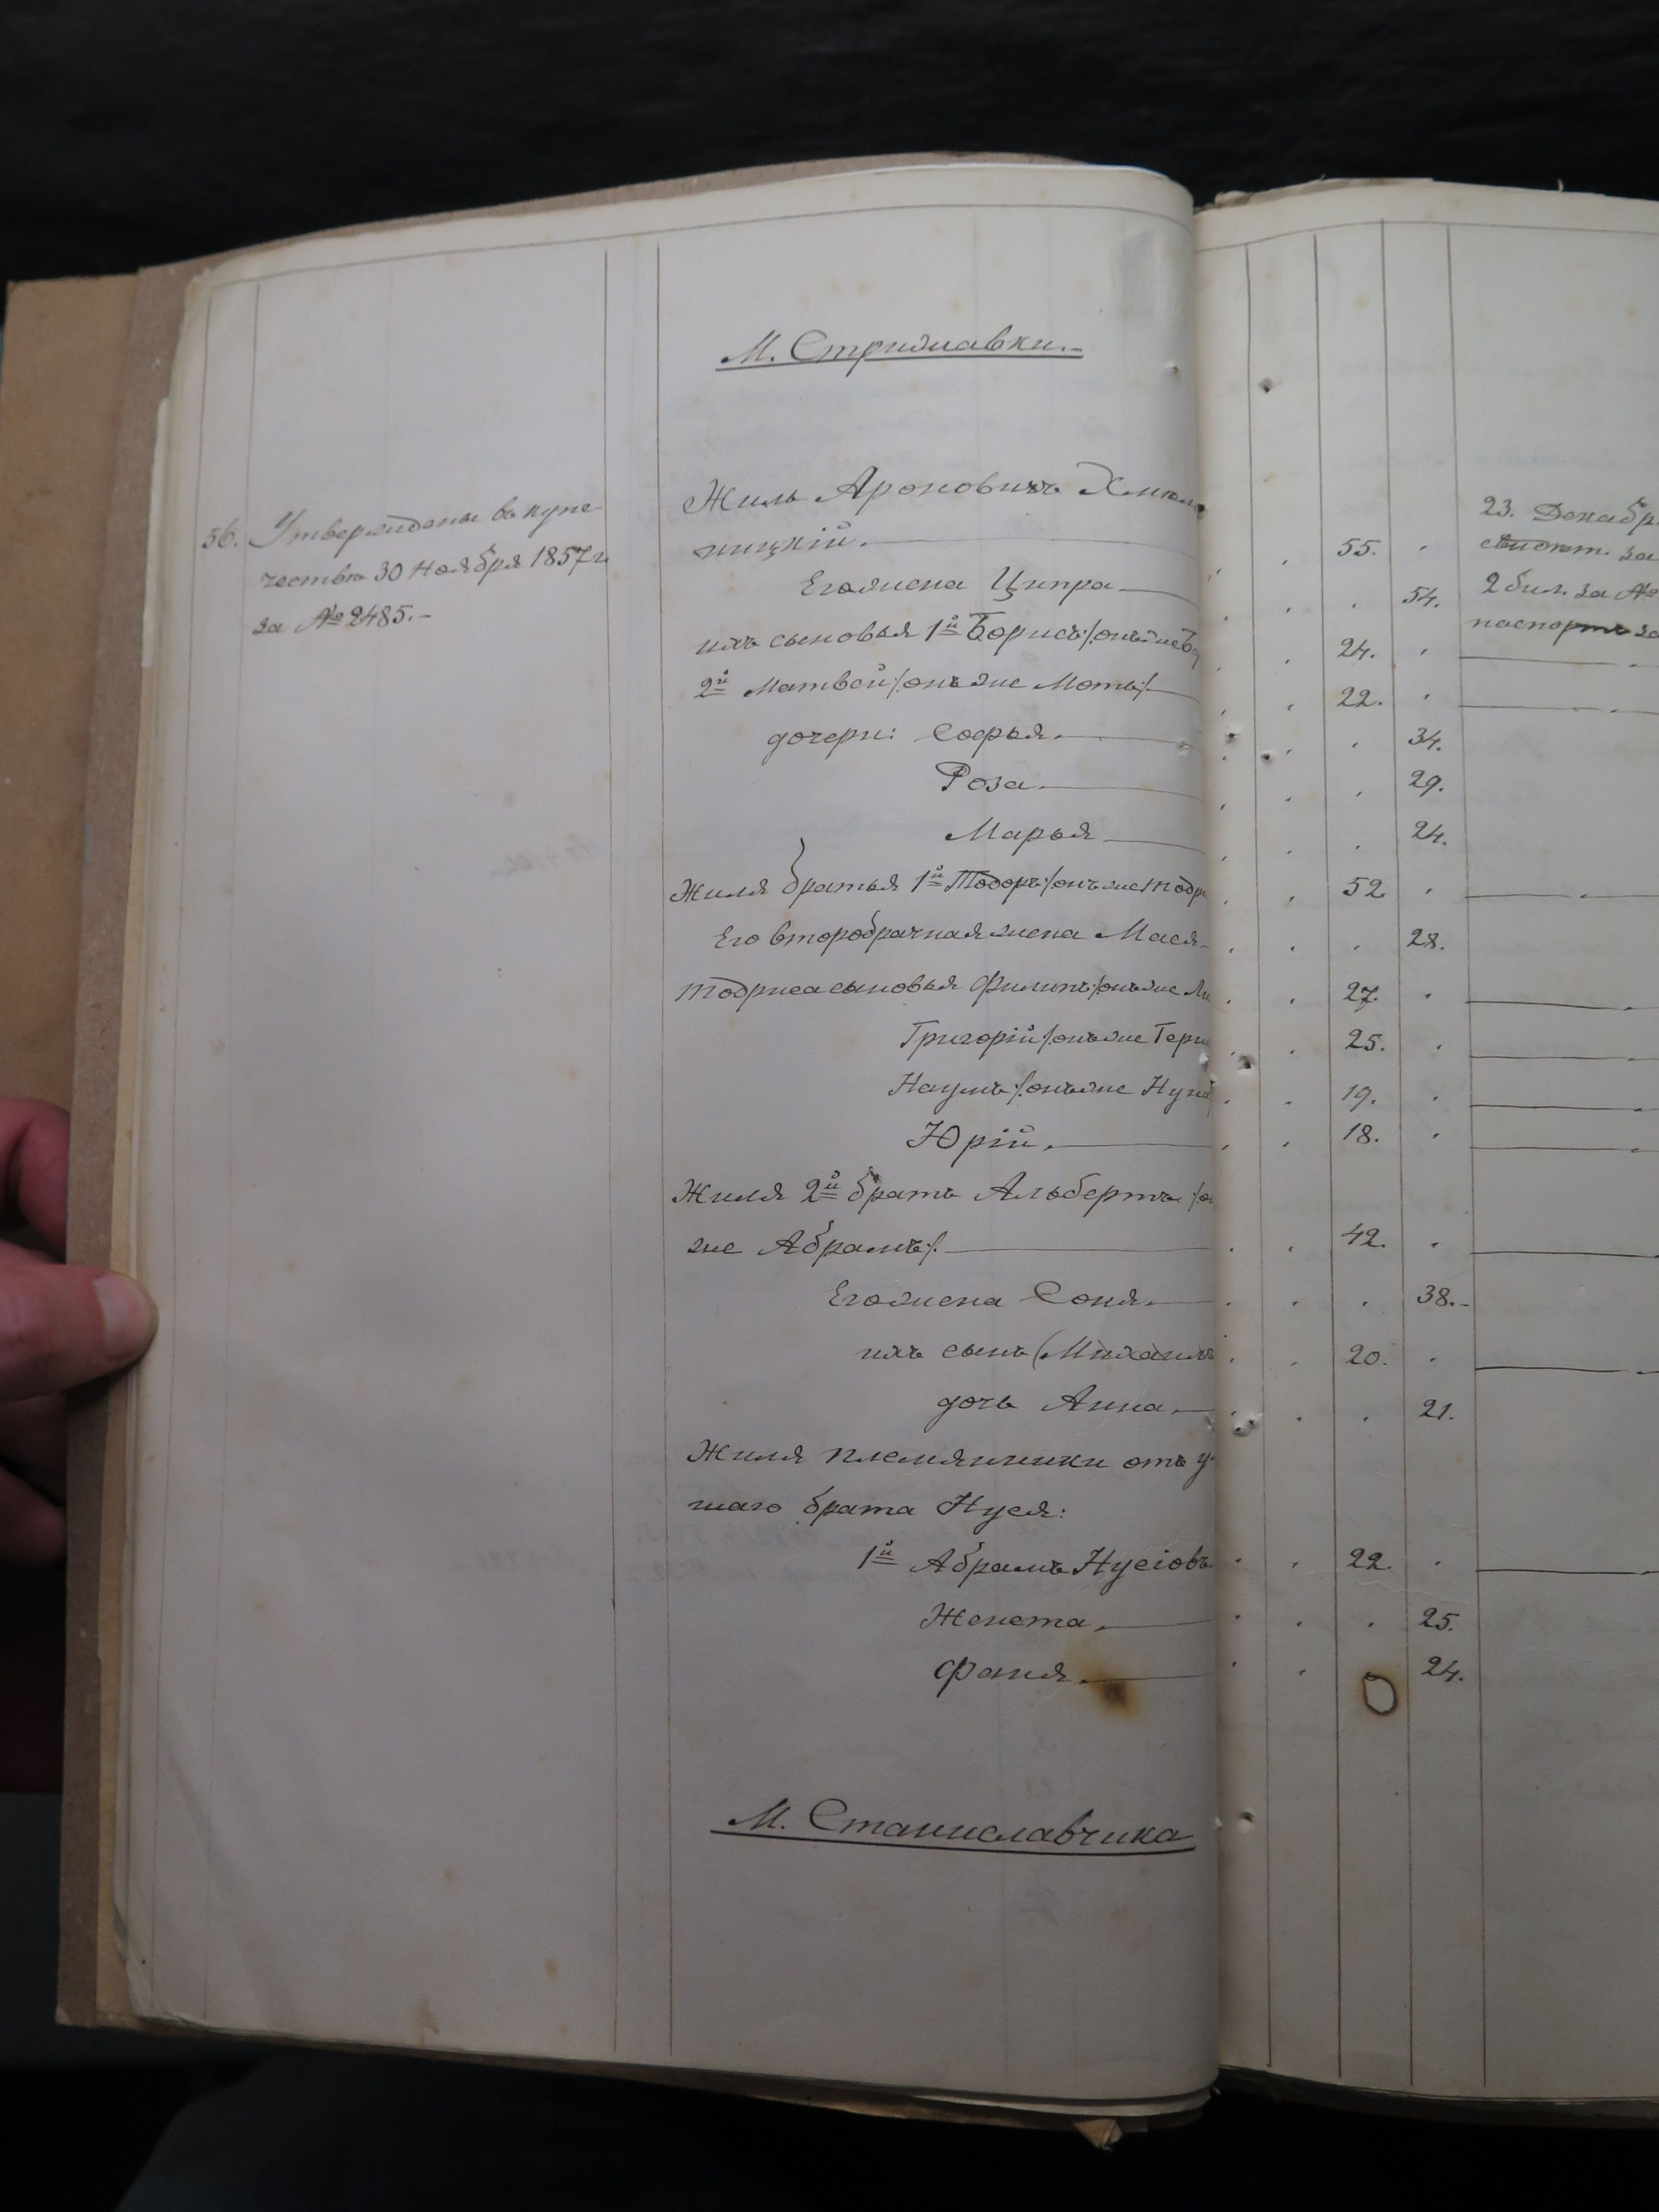 М. Стрижавки.
56. Утверждены въ купе-
чество 30 Ноября 1857 г.
за № 2485.-
Жиль Ароновичъ Хмель
ницкій. 55.
Его жена Ципра 54.
ихъ сыновья 1й Борисъ /:онъ же 24.
2й Матвей /:онъ же Моть:/ 22.
дочери: Софья. 34.
Роза. 29.
Марья 24.
Жиля братья 1й Тодоръ /:онъ же Тодри 52
Его второбрачная жена Мася. 28.
Тодриса сыновья Филипъ /:онъ же 27.
Григорій /:онъ же Герш 25.
Наумъ /:онъ же Нухи 19.
Юрій. 18.
Жиля 2й братъ Альбертъ /:он
же Абрамъ:/. 42.
Его жена Соня. 38.-
ихъ сынъ Михаилъ 20.
дочь Анна. 21.
Жиля племянники отъ у
шаго брата Нуся:
1й Абрамъ Нусіовъ. 22.
Женета. 25.
Фаня. 24.
М. Станиславчика
23. Декабр
за
2 бил. за №
паспортъ за